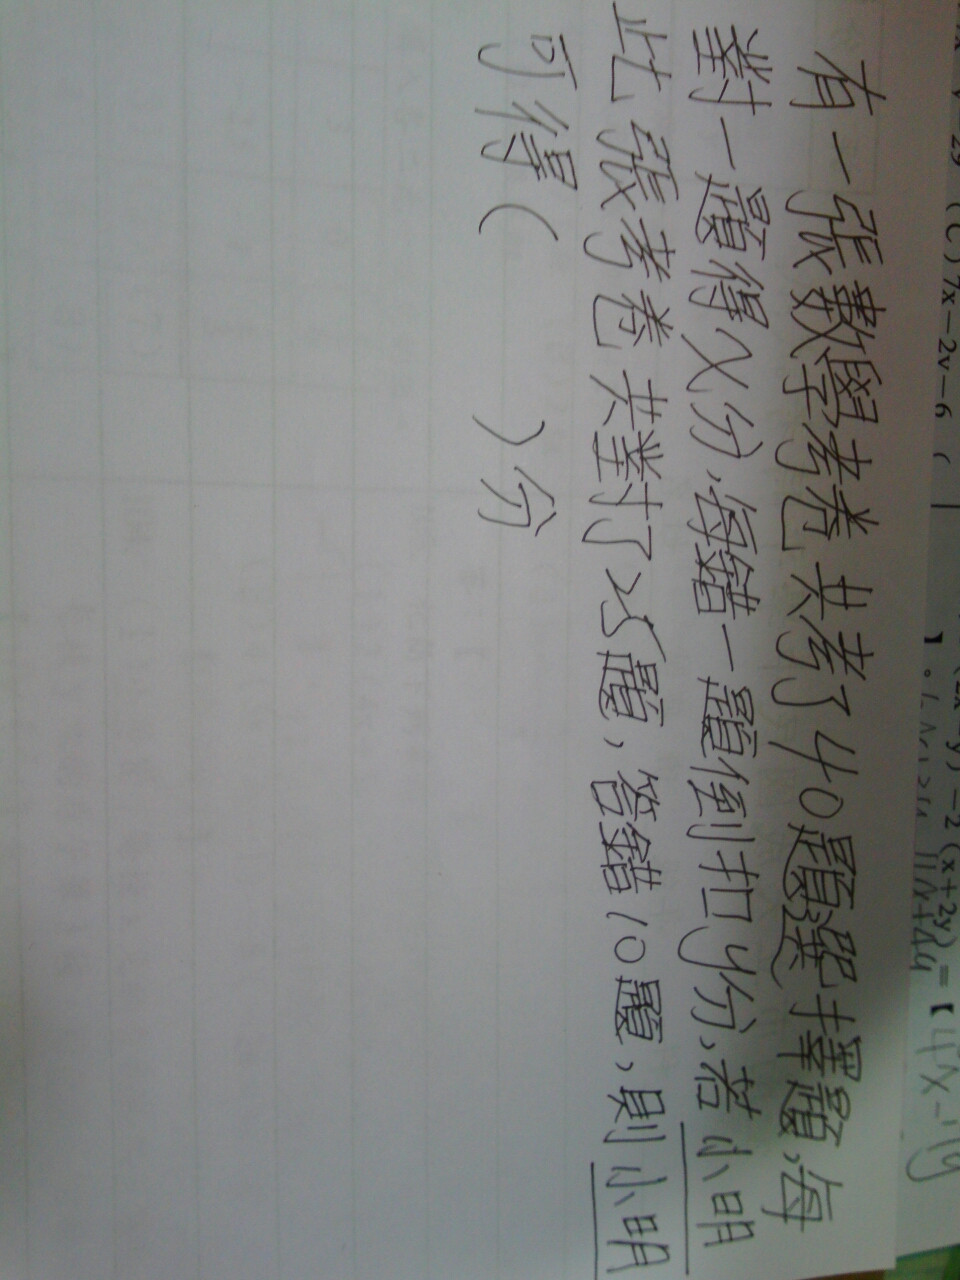 有一張數學考卷共考了40題選擇題,每
對一題得x分,每錯一題倒扣y分,若小明
此張考卷共對了25題,答錯10題,則小明
可得(      )分
(C) 7x-2y-6 (
-2(x+2y)=【